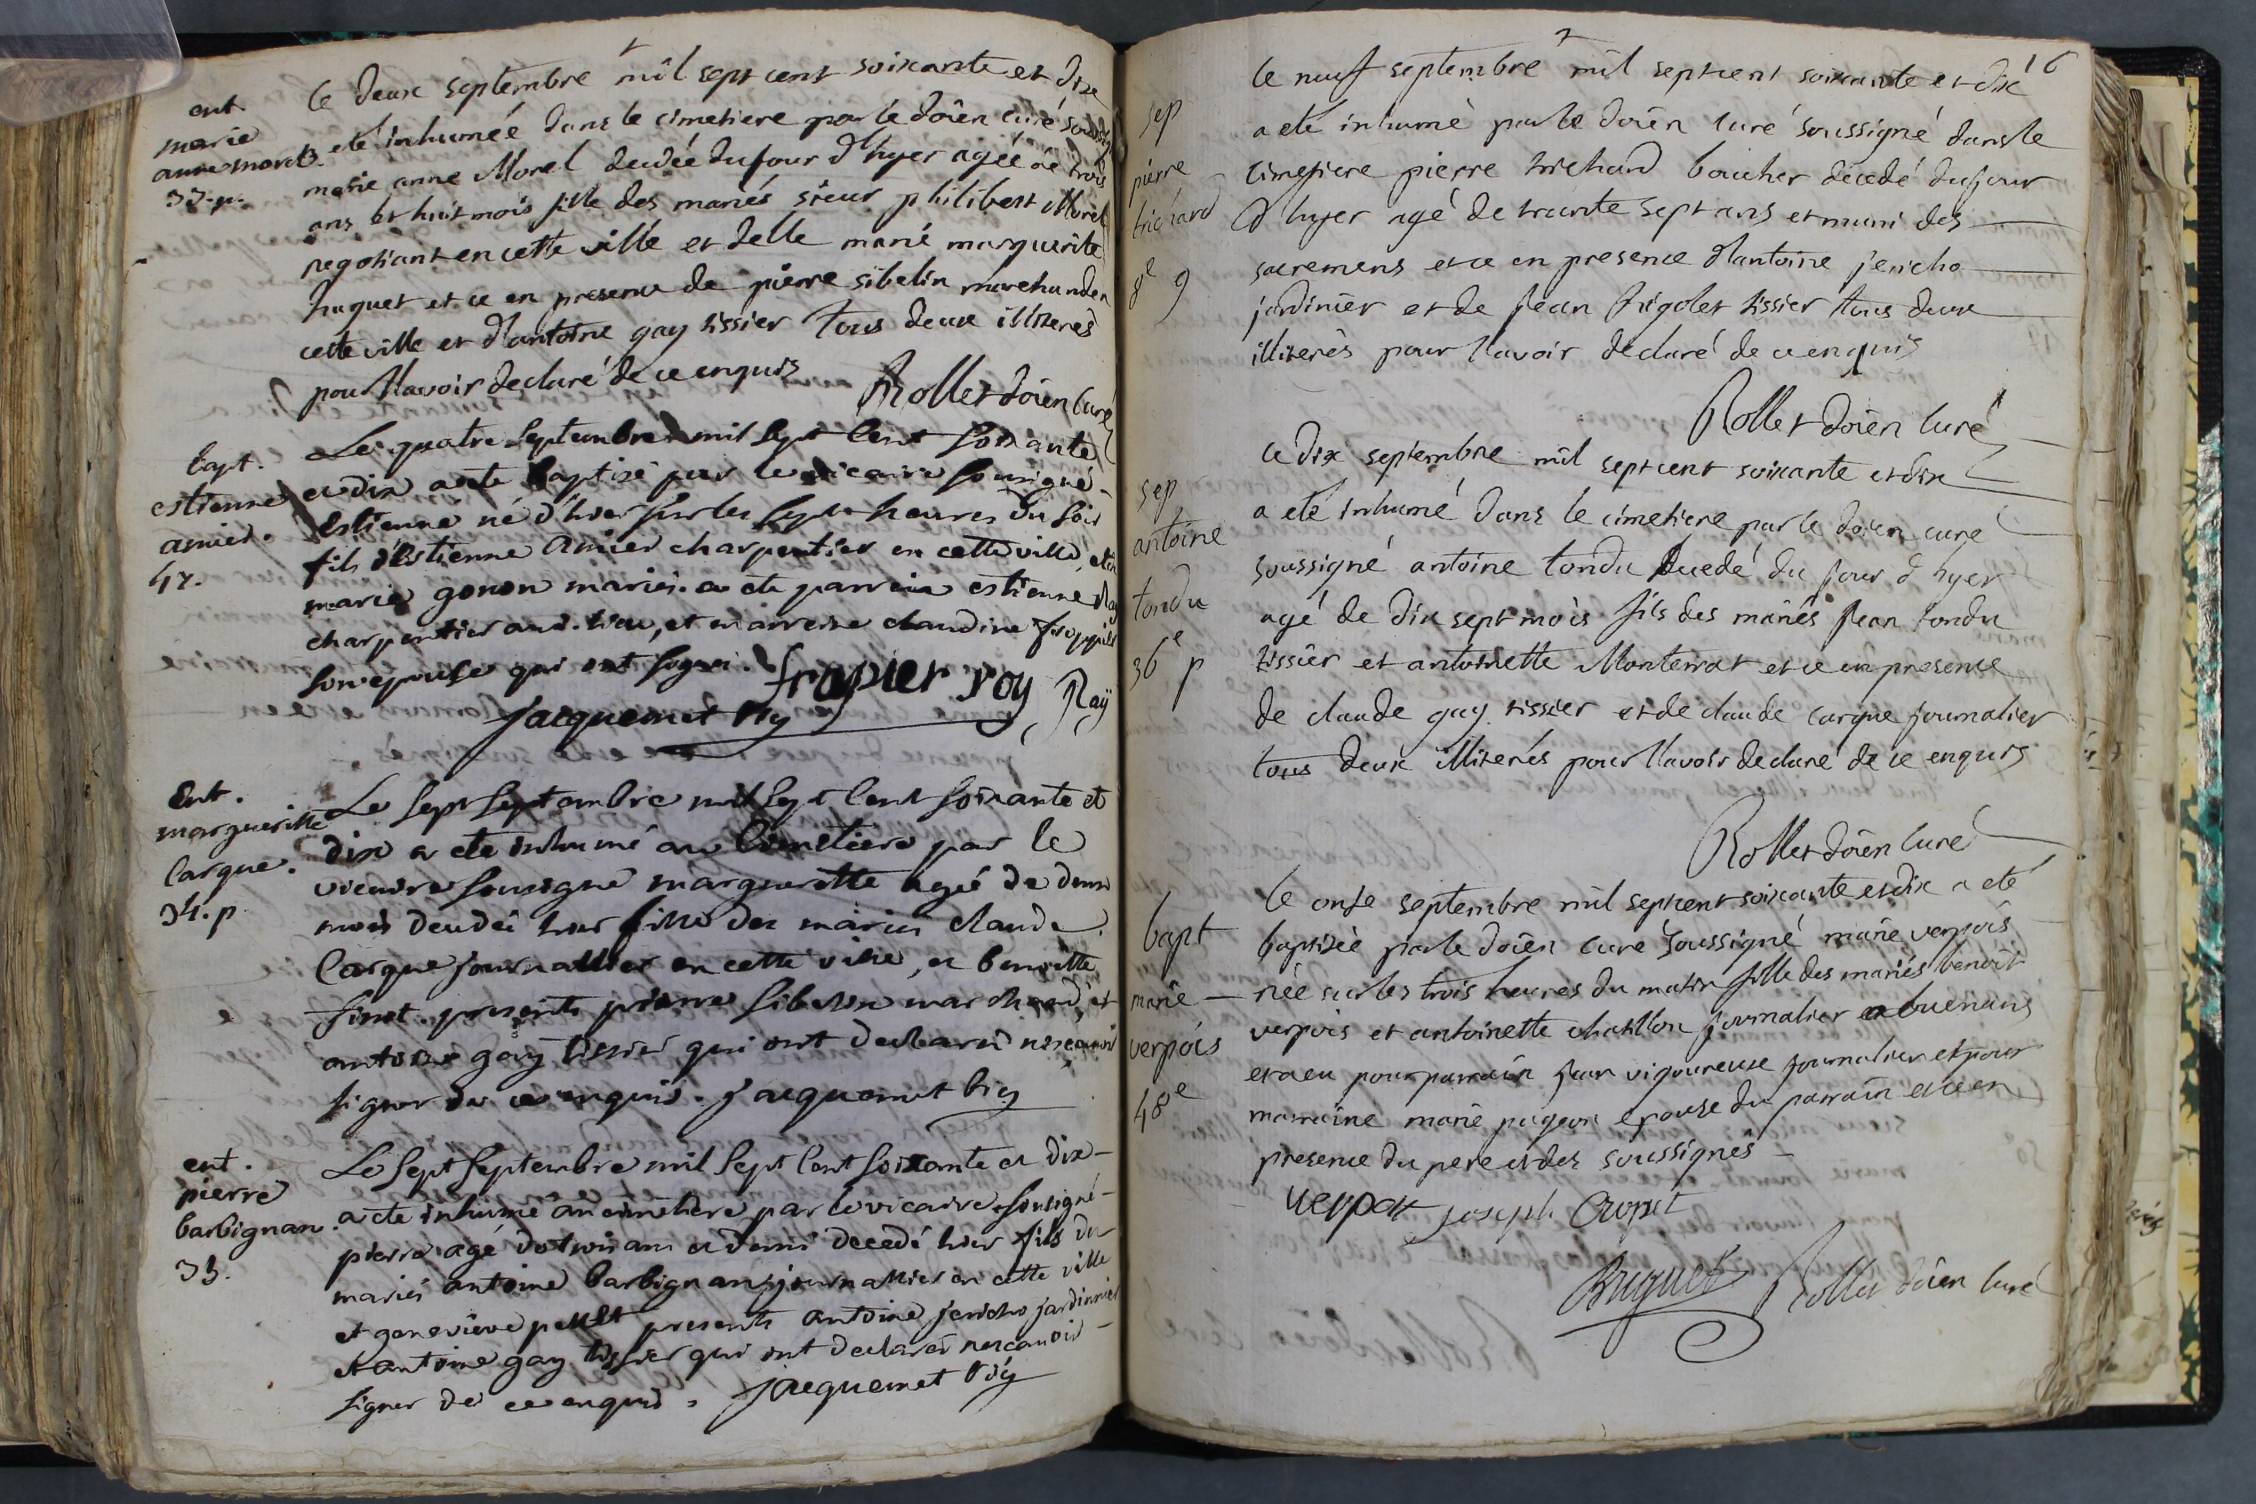 ent.
marie
anne morel.
33.p.
le deux septembre mil sept cent soixante et dix
a eté inhumée dans le cimetiere par le doien curé soussigné
marie anne Morel decedée du jour d'hyer agée de trois
ans et huit mois fille des mariés sieur philibert Morel
negotiant en cette ville et delle marie marguerite
huguet et ce en presence de pierre sibelin marchand en
cette ville et d'antoine gay tissier tous deux illiterés
pour l'avoir declaré de ce enquis
Rollet doien curé
bapt.
estienne
amier.
47.
Le quatre Septembre mil Sept Cent Soixante
et dix a ete baptizé par le vicaire Sousigné
estienne né d'hier sur les sept heures du soir
fils d'estienne amier charpentier en cette ville, et de
marie gonon mariés. a ete parrein estienne Ray
charpentier aud. lieu, et marreine claudine frappier
son epouse qui ont signé. frapier roy Raÿ
Jacquemet viç
Ent.
margueritte
Carque.
34.p
Le Sept Septembre mil Sept Cent Soixante et
dix a eté inhumé au Cimetiere par le
vicaire Sousigné margueritte agée de deux
mois decedéi hier fille des mariés claude
Carque journallier en cette ville, et benoitte
finot. presents pierre Sibelin marchand, et
antoine gay tissier qui ont declaré ne scavoir
signer de ce enquis. Jacquemet viç
ent.
pierre
barbignan.
35.
Le Sept Septembre mil Sept Cent Soixante et dix
a ete inhumé au cimetiere par le vicaire Sousigné
pierre agé de trois ans et demi decedé hier fils des
mariés antoine barbignan journallier en cette ville
et genevieve petit presents antoine jericho jardinnier
et antoine gay tissier qui ont declaré ne scavoir
signer de ce enquis. Jacquemet viç
16
sep
pierre
trichard
8e g
le neuf septembre mil sept cent soixante et dix
a eté inhumé par le doien curé soussigné dans le
cimetiere pierre trichard boucher decedé du jour
d'hyer agé de trante sept ans et muni des
sacremens et ce en presence d'antoine jericho
jardinier et de jean rigolet tissier tous deux
illiterés pour l'avoir declaré de ce enquis
Rollet doien curé
sep
antoine
tondu
36e p
le dix septembre mil sept cent soixante et dix
a eté inhumé dans le cimetiere par le doien curé
soussigné antoine tondu decedé du jour d'hyer
agé de dix sept mois fils des mariés jean tondu
tissier et antoinette Monterrat et ce en presence
de claude gay tissier et de claude carque journalier
tous deux illiterés pour l'avoir declaré de ce enquis
Rollet doien curé
bapt
marie
verpois
48e
le onze septembre mil sept cent soixante et dix a eté
baptizée par le doien curé soussigné marie verpois
née sur les trois heures du matin fille des mariés benoit
verpois et antoinette chatillon journalier a buenans
et a eu pour parrain jean vigoureuse journalier et pour
marraine marie pageon epouse du parrain et ce en
presence du pere et des soussignés
verpoix joseph Cropet
Briguet Rollet doien curé